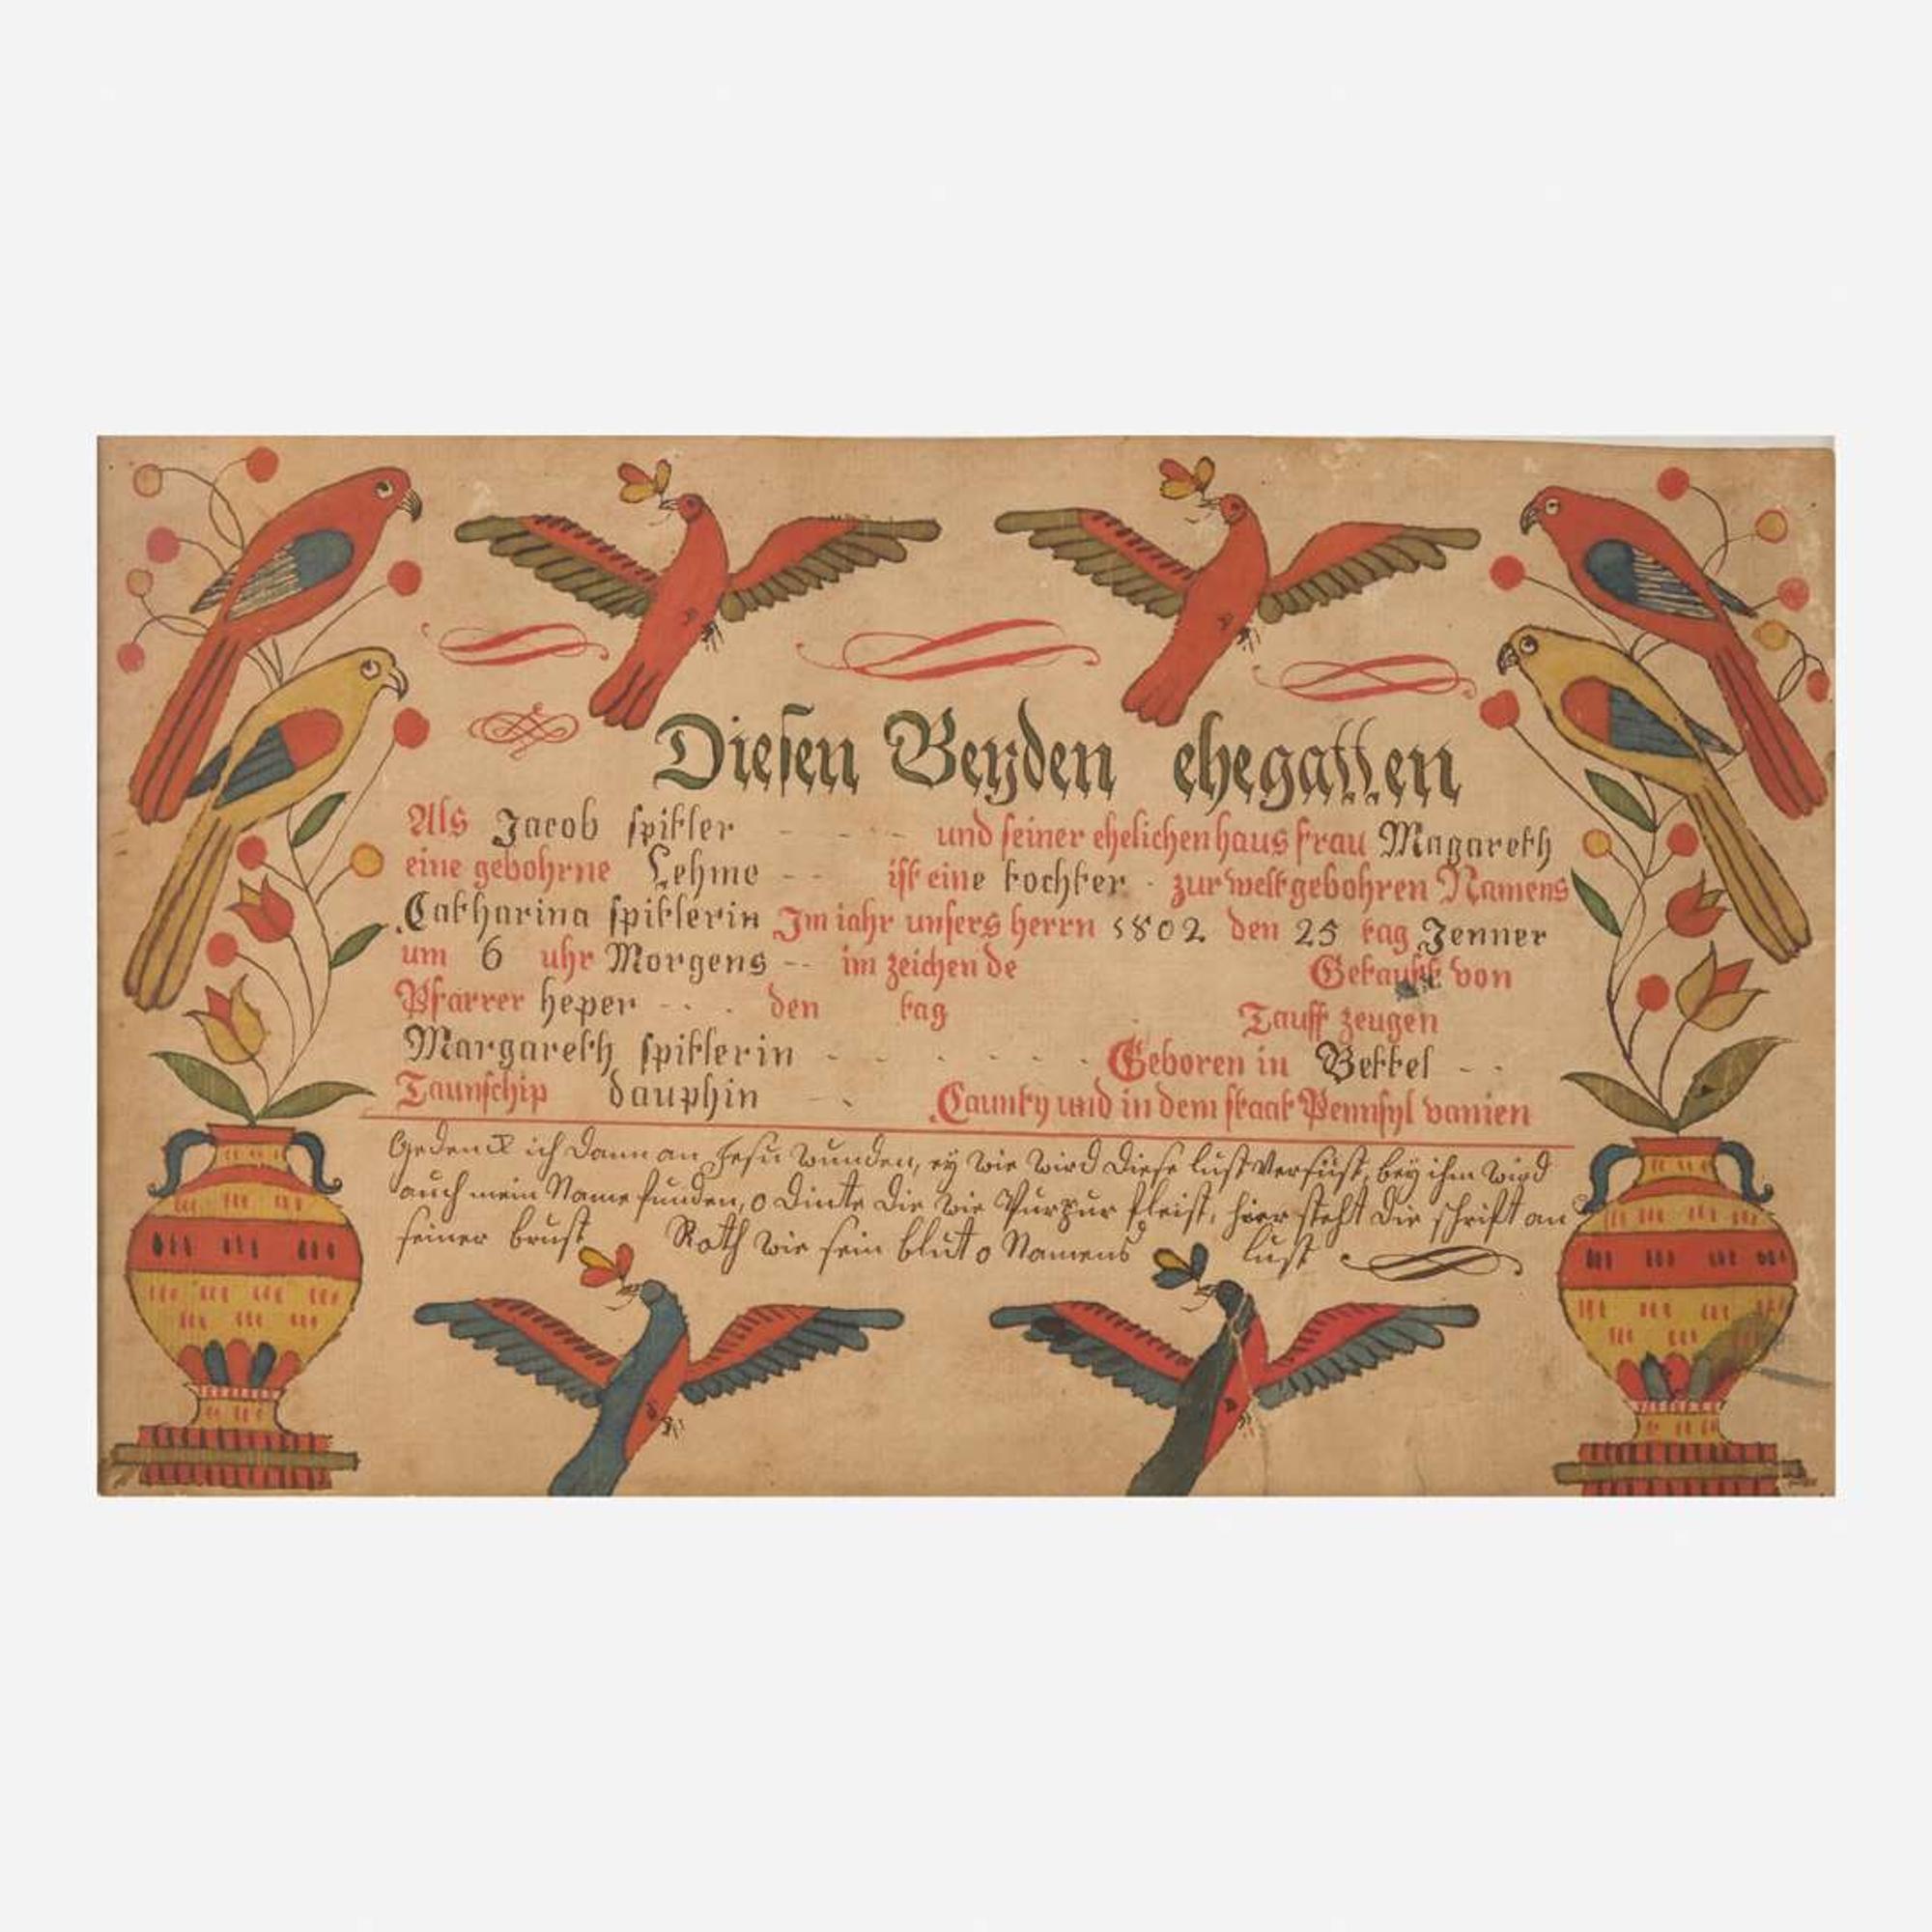 Diesen Beyden ehegatten
Als Jacob spitler - - - - und seiner ehelichen haus frau Magareth
eine gebohrne Lehmo - - ist eine tochter - zur welt gebohren Namens
Catharina spitlerin Im iahr unsers herrn 1802 den 25 tag Jenner
um 6 uhr Morgens -- im zeichen de Getauft von
Pfarrer heper - - . den tag Tauff zeugen
Margareth spitlerin - - - - - - - Geboren in Bettel - -
Taunschip dauphin - - Caunty und in dem staat Pennsyl vanien
Gedenck ich dann an Jesu wunden, ey wie wird diese lust versüst, bey ihm wird
auch mein Name funden, o dinte die wie Purpur fleist, hier steht die schrift an
seiner brust Roth wie sein blut o Namens lust